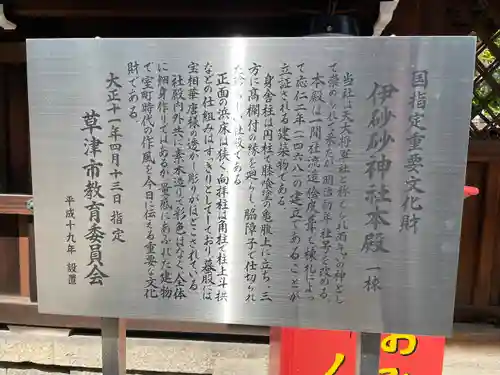 国指定重要文化財
伊砂砂神社本殿 一棟
当社は天大将軍社と称せられ雨乞いの神とし
て崇められて来たが、明治初年社号を改める。
本殿は一間社流造、桧皮葺で、棟札によっ
て応仁二年(一四六八)の建立であることが
立証される建築物である。
身舎柱は円柱で膝喰塗の亀腹上に立ち、三
方に高欄付の縁を廻し、脇障子で仕切られ
正面の浜床は狭く、向拝柱は角柱で柱上斗拱
などの仕組みはすっきりとしており、蟇股には
宝相華唐様の透かし彫りがほどこされている。
社殿内外共に素木造りで彩色はなく、全体
に細身作りではあるが量感にあふれた建物
で室町時代の作風を今日に伝える重要な文化
財である。
大正十一年四月十三日 指定
草津市教育委員会
平成十九年 設置
おみく